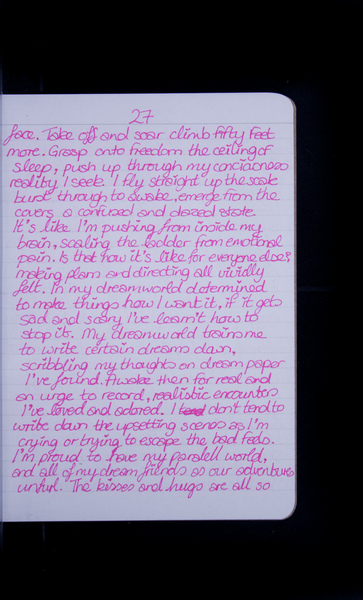 27
face. Take off and soar climb fifty feet
more. Grasp onto freedom the ceiling of
sleep, push up through my conciousness
reality I seek. I fly straight up the scale
burst through to awake, emerge from the
covers a confused and dazed state.
It's like I'm pushing from inside my
brain, scaling the ladder from emotional
pain. Is that how it's like for everyone else?
making plans and directing all vividly
felt. In my dreamworld determined
to make things how I want it, if it gets
sad and scary I've learn't how to
stop it. My dreamworld trains me
to write certain dreams down,
scribbling my thoughts on dream paper
I've found. Awake then for real and
an urge to record, realistic encounters
I've loved and adored. I don't tend to
write down the upsetting scenes as I'm
crying or trying to escape the bad feds.
I'm proud to have my paralell world,
and all of my dream friends as our adventures
unfurl. The kisses and hugs are all so